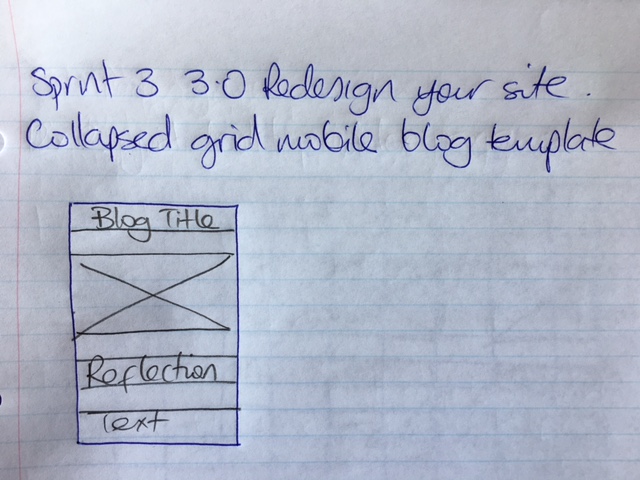 Sprint 3 3.0 Redesign your site.
Collapsed grid mobile blog template
Blog Title
Reflection
Text